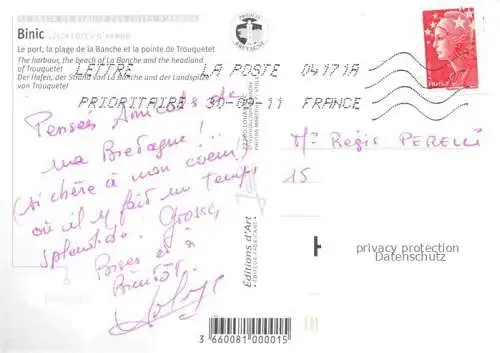 LE GRAIN DE BEAUTÉ DES CÔTES D'ARMOR
Binic 22520 CÔTES D'ARMOR
Le port, la plage de la Banche et la pointe de Trouquetet
The harbour, the beach of La Banche and the headland
of Trouquetet
Der Hafen, der Strand von La Banche und der Landspitze
von Trouquetet
BRETAGNE
FRANCE
LETTRE LA POSTE 04171A
PRIORITAIRE 30-09-11 FRANCE
Pensées Amicales de
ma Bretagne !...
(si chère à mon coeur)
où il y fait un temps
splendide. Grosses
Bises et à
Bientôt.
Mr Régis PERELLI
15
Editions d'Art
privacy protection
Datenschutz
3 660081 000015